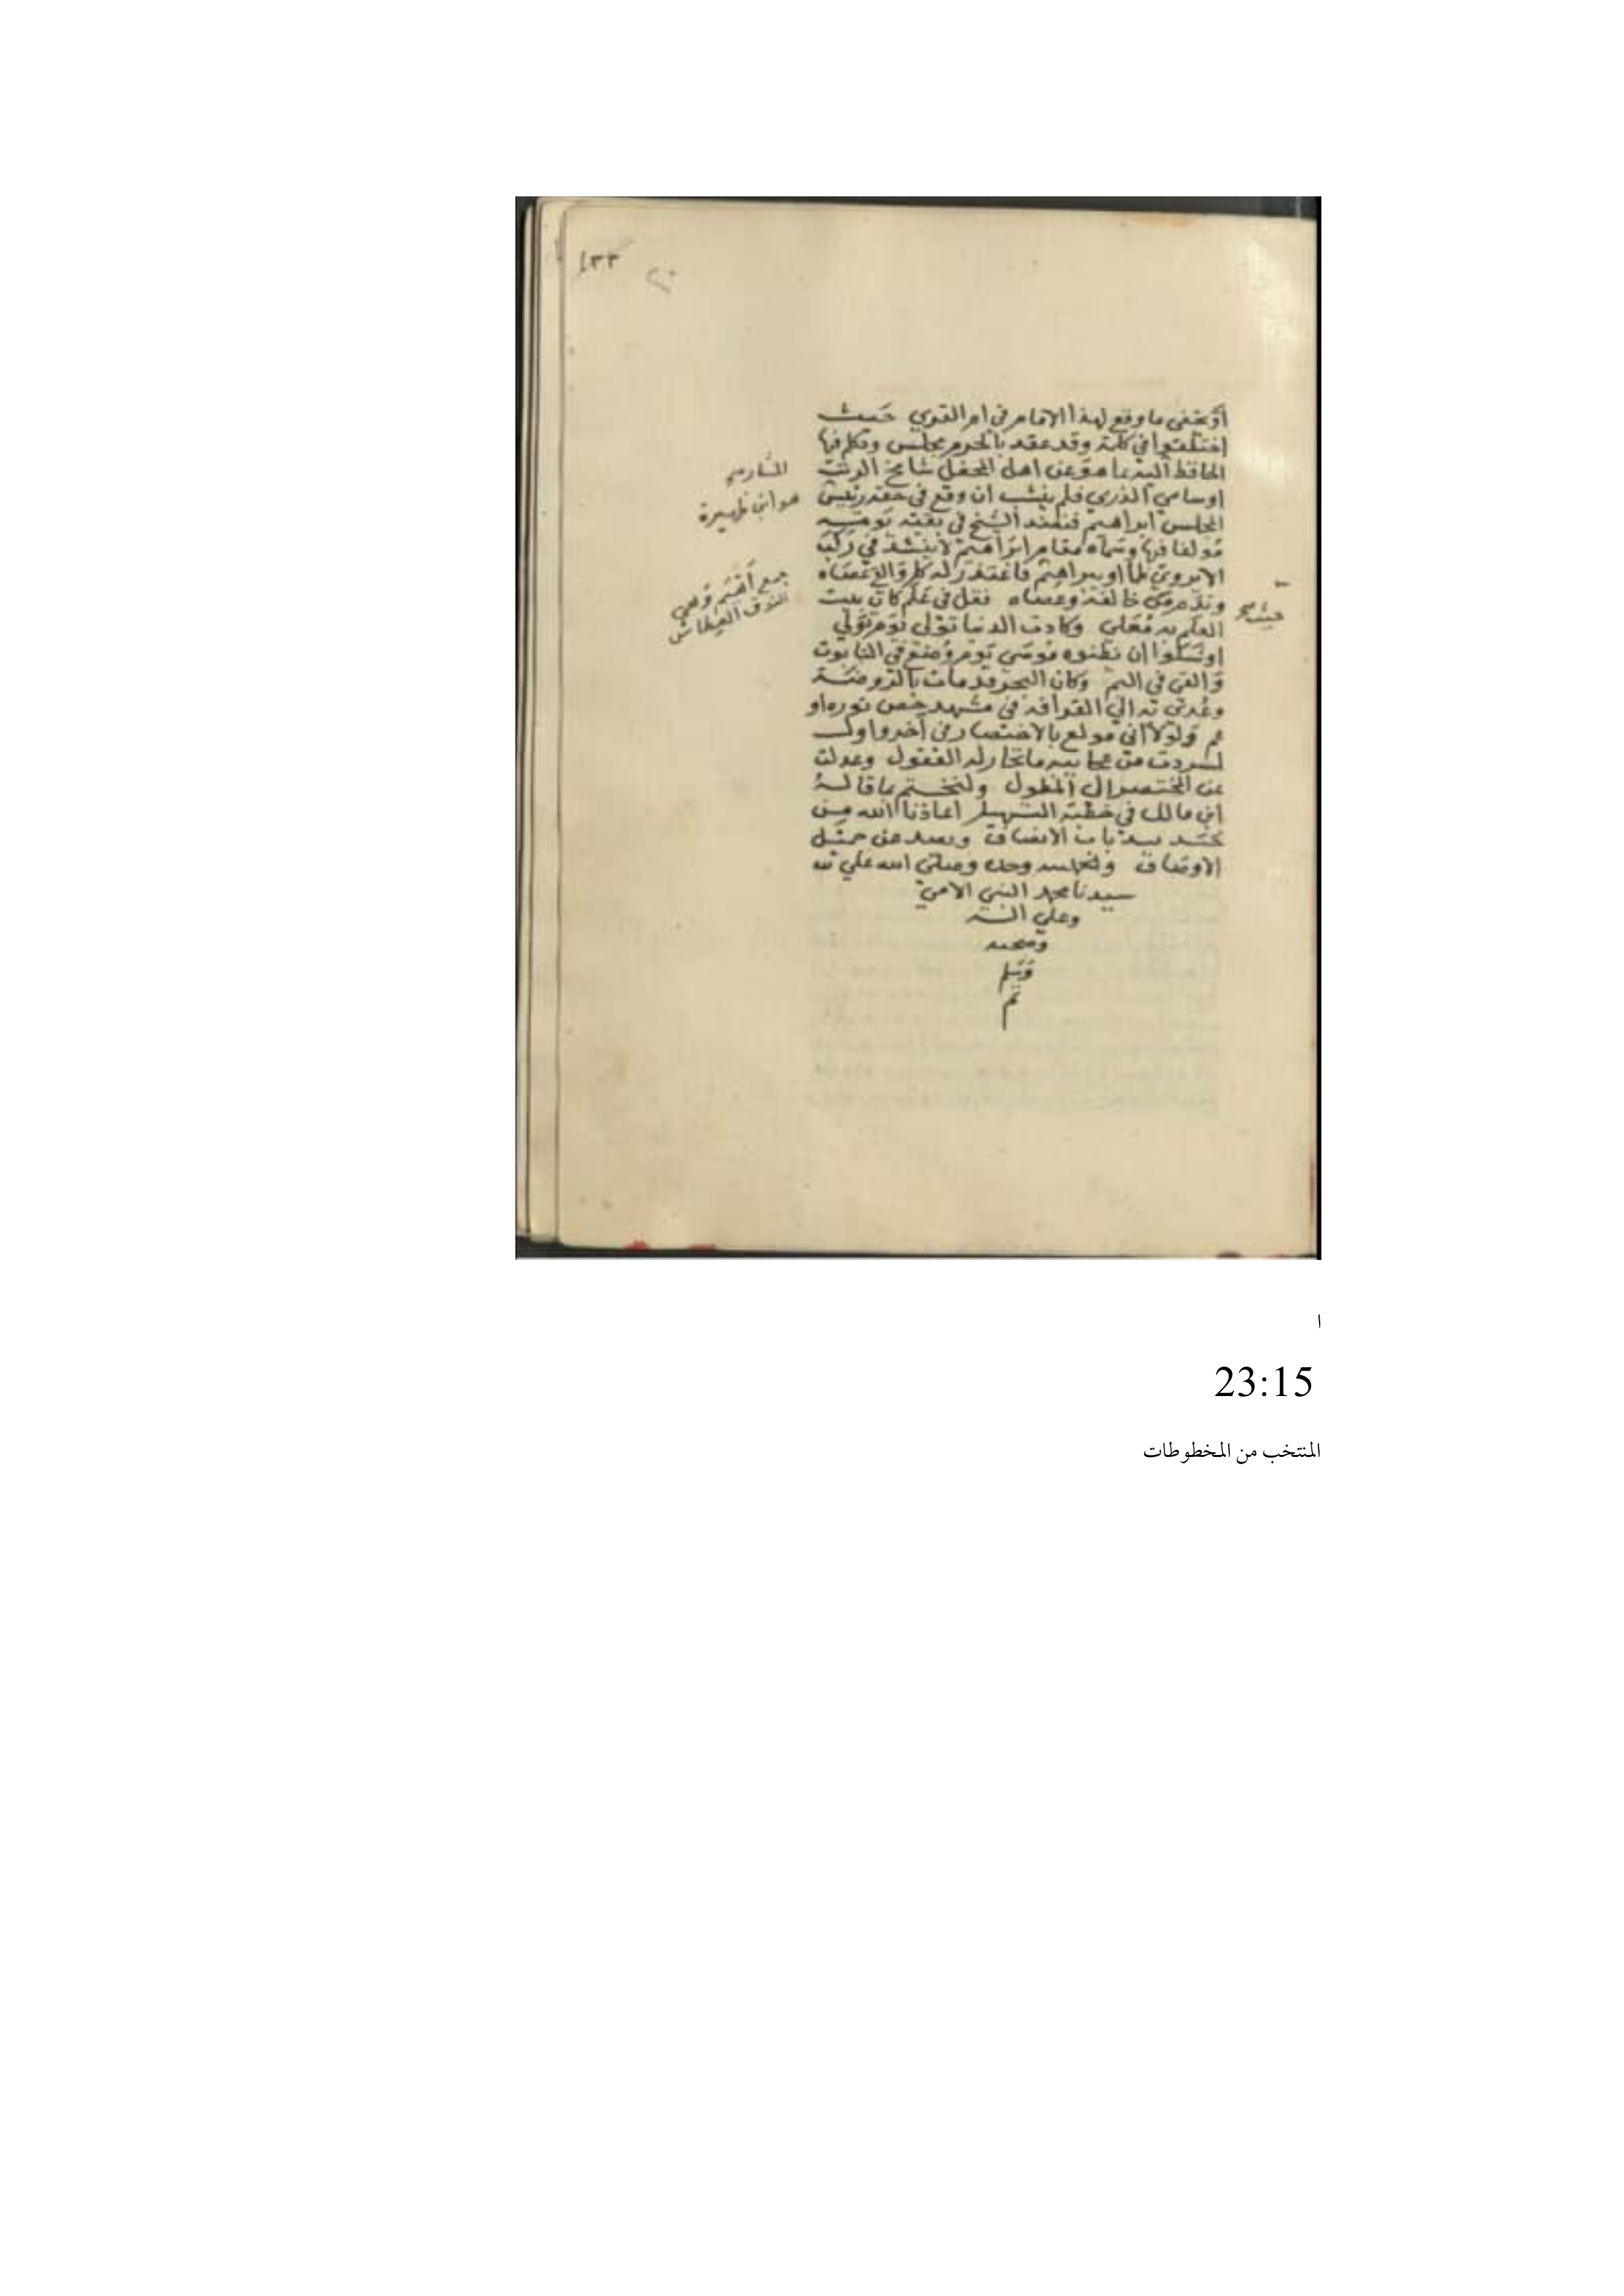 ١٣٣
أو يخفى ما وقع لهذا الإمام في أم القرى حيث
اختلفوا في كلمة وقد عقد بالحرم مجلس وتكلم فيها
الحافظ أبو عن أهل المحفل شامخ الرتب
المشار
أو سامي الذرى فلم ينشب أن وقع في حقه رئيس
هو ابن ظهيرة
المجلس ابراهيم الشيخ في يومه
مولفا فيها وسماه مقام ابراهيم
فاعتذر له كل والى عصاه
جمع أهيم وهي
النوق العطاش
وندم من خالفه وعصاه فقل في علم كان بيت
العلم به معلى وكادت الدنيا تولى يوم تولي
موسى يوم وضع في التابوت
وألقي في اليم وكان البحر قد مات بالروضة
وعدي به الى القرافة في مشهد خص نوره او
عم ولولا أني مولع بالاختصار في آخر وأول
لسردت من عجايبه ما تحار له العقول وعدلت
عن المختصر الى المطول ولنختم بما قاله
ابن مالك في خطبة التسهيل اعاذنا الله من
حسد يسد باب الانصاف ويصد عن جميل
الاوصاف والحمد لله وحده وصلى الله علي
سيدنا محمد النبي الامي
وعلي اله
وصحبه
وسلم
تم
ا
23:15
المنتخب من المخطوطات